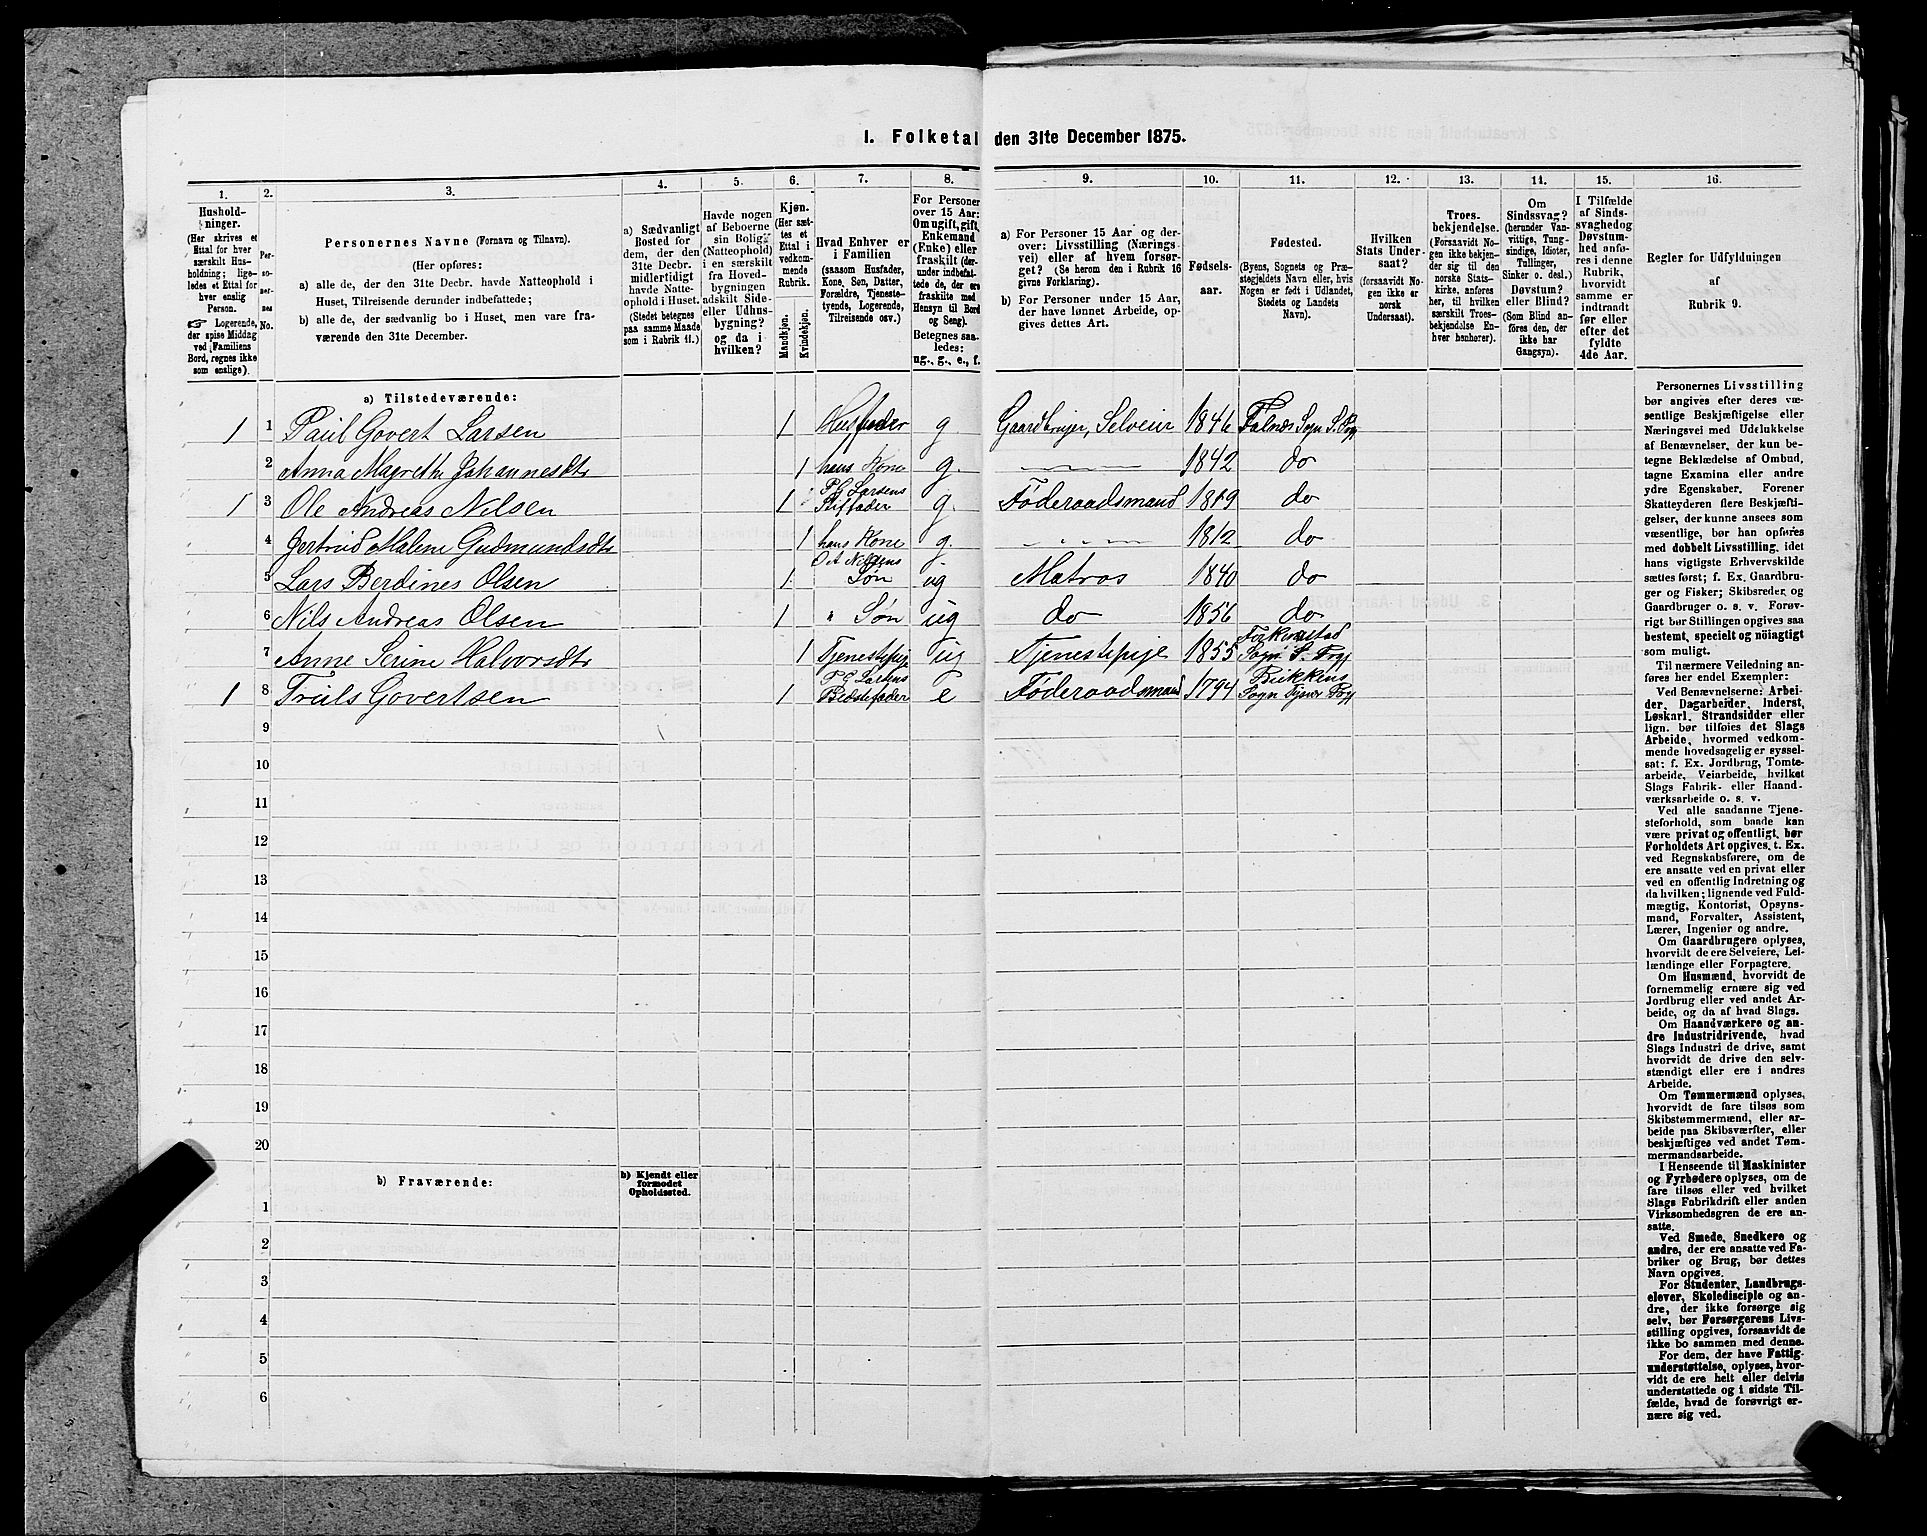 1. Folketal den 31te December 1875.
1. 2. 3. 4. 5. 6. 7. 8. 9. 10. 11. 12. 13. 14. 15. 16.
Hushold-
ninger.
(Her skrives et
Ettal for hver
særskilt Hus-
holdning; lige-
ledes et Ettal for
hver enslig
Person.
☞ Logerende,
der spise Middag
ved Familiens
Bord, regnes ikke
som enslige).
Per-
so-
ner-
nes
No.
Personernes Navne (Fornavn og Tilnavn).
(Her opføres:
a) alle de, der den 31te Decbr. havde Natteophold i
Huset, Tilreisende derunder indbefattede;
b) alle de, der sædvanlig bo i Huset, men vare fra-
værende den 31te December.
a) Sædvanligt
Bosted for
dem, der den
31te Decbr.
midlertidigt
havde Natte-
ophold i Huset.
(Stedet betegnes
paa samme Maade
som i Rubrik 11.)
Havde nogen
af Beboerne
sin Bolig
(Natteophold)
i en særskilt
fra Hoved-
bygningen
adskilt Side-
eller Udhus-
bygning?
og da i
hvilken?
Kjøn.
(Her sæt-
tes et
Ettal i
vedkom-
mende
Rubrik.
Mandkjøn.
Kvindekjøn.
Hvad Enhver er
i Familien
(saasom Husfader,
Kone, Søn, Datter,
Forældre, Tjeneste-
tyende, Logerende,
Tilreisende osv.)
For Personer
over 15 Aar:
Om ugift, gift,
Enkemand
(Enke) eller
fraskilt (der-
under indbefat-
tede de, der ere
fraskilte med
Hensyn til Bord
og Seng).
Betegnes saa-
ledes:
ug., g., e., f.
a) For Personer 15 Aar og der-
over: Livsstilling (Nærings-
vei) eller af hvem forsør-
get? (Se herom den i Rubrik 16
givne Forklaring).
b) For Personer under 15 Aar,
der have lønnet Arbeide, op-
gives dettes Art.
Fødsels-
aar.
Fødested.
(Byens, Sognets og Præ-
stegjeldets Navn eller, hvis
Nogen er født i Udlandet,
Stedets og Landets
Navn).
Hvilken
Stats Under-
saat?
(forsaavidt No-
gen ikke er
norsk
Undersaat).
Troes-
bekjendelse.
(Forsaavidt No-
gen ikke bekjen-
der sig til den
norske Stats-
kirke, anføres
her, til hvilken
særskilt Troes-
bekjendelse En-
hver henhører).
Om
Sindssvag?
(herunder Van-
vittige, Tung-
sindige, Idioter,
Tullinger,
Sinker o. desl.)
Døvstum?
eller Blind?
(Som Blind an-
føres den, der
ikke har
Gangsyn).
I Tilfælde
af Sinds-
svaghed og
Døvstum-
hed anfø-
res i denne
Rubrik,
hvorvidt
samme er
indtraadt
før eller
efter det
fyldte
4de Aar.
Regler for Udfyldningen
af
Rubrik 9.
a) Tilstedeværende:
1 1 Paul Govert Larsen 1 Husfader g Gaardbruger, Selveier 1846 Falnæs Sogn S. Prgj
2 Anna Magrethe Johannesdtr 1 hans Kone g. 1842 do
1 3 Ole Andreas Nilsen 1 P G Larsens Stiffader g. Føderaadsmand 1819 do
4 Gertrud Malene Gudmundsdtr 1 hans Kone g. 1812 do
5 Lars Berdines Olsen 1 O A Nilsens Søn ug Matros 1840 do
6 Nils Andreas Olsen 1 " Søn ug do 1856 do
7 Anne Serine Halvorsdtr 1 Tjenestepige ug Tjenestepige 1855 Sogn S. Prgj
1 8 Truls Govertsen 1 P G Larsens Bedstefader e Føderaadsmand 1794 Sogn
9
10
11
12
13
14
15
16
17
18
19
20
b) Fraværende:
b) Kjendt eller
formodet
Opholdssted.
1
2
3
4
5
6
Personernes Livsstilling
bør angives efter deres væ-
sentlige Beskjæftigelse eller
Næringsvei med Udelukkelse
af Benævnelser, der kun be-
tegne Beklædelse af Ombud,
tagne Examina eller andre
ydre Egenskaber. Forener
Skatteyderen flere Beskjæfti-
gelser, der kunne ansees som
væsentlige, bør han opføres
med dobbelt Livsstilling, idet
hans vigtigste Erhvervskilde
sættes først; f. Ex. Gaardbru-
ger og Fisker; Skibsreder og
Gaardbruger o. s. v. Forøv-
rigt bør Stillingen opgives saa
bestemt, specielt og nöiagtigt
som muligt.
Til nærmere Veiledning an-
føres her endel Exempler:
Ved Benævnelserne: Arbei-
der, Dagarbeider, Inderst,
Løskarl, Strandsidder eller
lign. bør tilføies det Slags
Arbeide, hvormed vedkom-
mende hovedsagelig er syssel-
sat: f. Ex. Jordbrug, Tomte-
arbeide, Veiarbeide, hvilket
Slags Fabrik- eller Haand-
værksarbeide o. s. v.
Ved alle saadanne Tjene-
steforhold, som baade kan
være privat og offentligt, bør
Forholdets Art opgives, t. Ex.
ved Regnskabsførere, om de
ere ansatte ved en privat eller
ved en offentlig Indretning og
da hvilken; lignende ved Fuld-
mægtig, Kontorist, Opsyns-
mand, Forvalter, Assistent,
Lærer, Ingeniør og andre.
Om Gaardbrugere oplyses,
hvorvidt de ere Selveiere, Lei-
lændinge eller Forpagtere.
Om Husmænd, hvorvidt de
fornemmelig ernære sig ved
Jordbrug eller ved andet Ar-
beide, og da af hvad Slags.
Om Haandværkere og an-
dre Industridrivende, hvad
Slags Industri de drive, samt
hvorvidt de drive den selv-
stændigt eller ere i andres
Arbeide.
Om Tømmermænd oplyses,
hvorvidt de fare tilsøs som
Skibstømmermænd, eller ar-
beide paa Skibsværfter, eller
beskjæftiges ved andet Tøm-
mermandsarbeide.
I Henseende til Maskinister
og Fyrbødere oplyses, om de
fare tilsøs eller ved hvilket
Slags Fabrikdrift eller anden
Virksomhedsgren de ere an-
satte.
Ved Smede, Snedkere og
andre, der ere ansatte ved Fa-
briker og Brug, bør dettes
Navn opgives.
For Studenter, Landbrugs-
elever, Skoledisciple og an-
dre, der ikke forsørge sig
selv, bør Forsørgerens Livs-
stilling opgives, forsaavidt de
ikke bo sammen med denne.
For dem, der have Fattig-
understøttelse, oplyses, hvor-
vidt de ere helt eller delvis
understøttede og i sidste Til-
fælde, hvad de forøvrigt er-
nære sig ved.